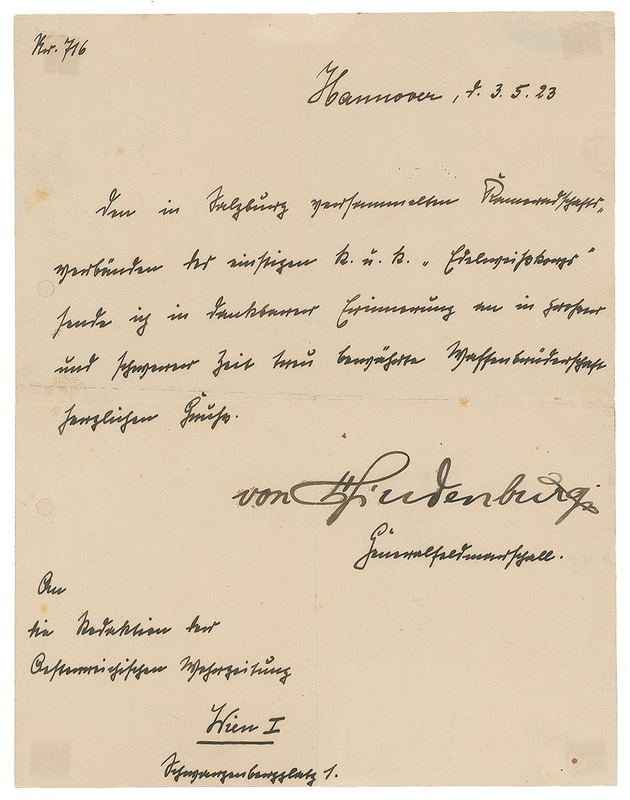 Nr. 716
Hannover, d. 3.5.23
Den in Salzburg versammelten Kameradschafts-
verbänden des einstigen K. u. K. „Edelweißkorps"
sende ich in dankbarer Erinnerung an in großer
und schwerer Zeit treu bewährte Waffenbrüderschaft
herzlichen Gruß.
von Hindenburg
Generalfeldmarschall.
An
die Redaktion der
Oesterreichischen Wehrzeitung
Wien I
Schwarzenbergplatz 1.